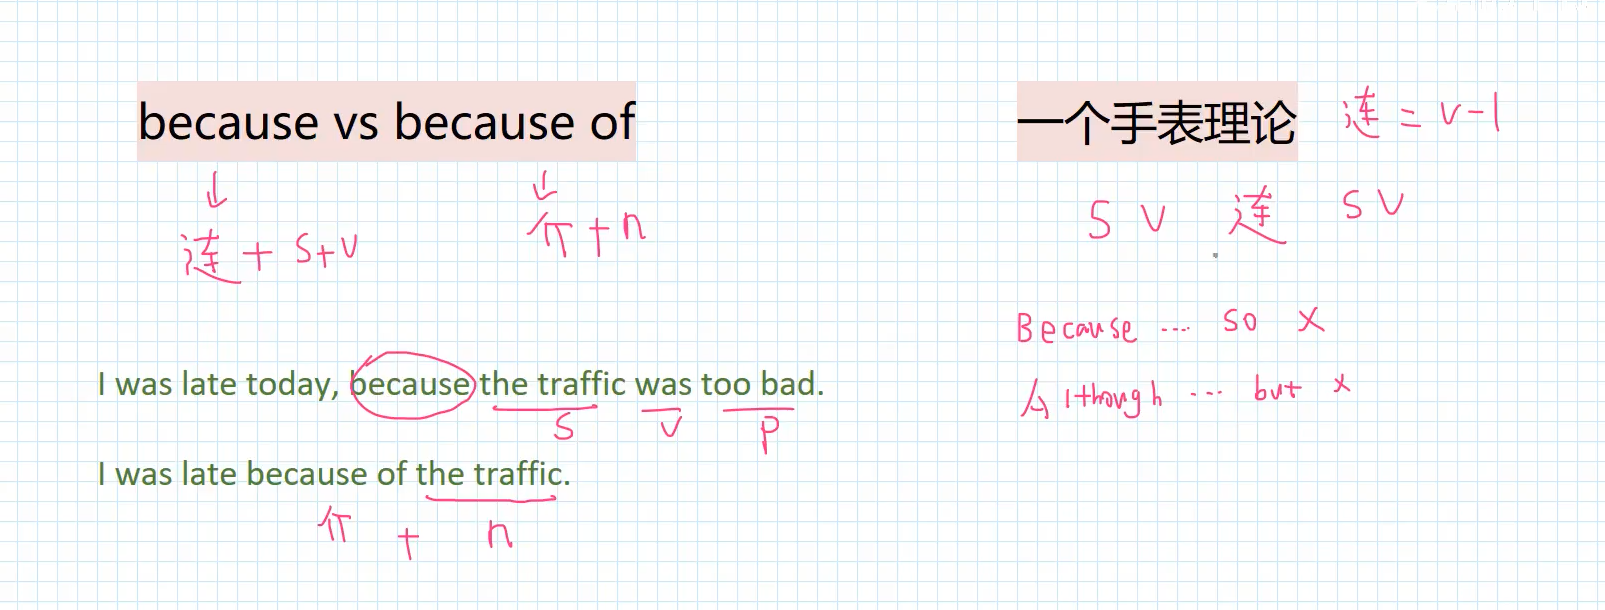 because vs because of
连 + S+V
介 + n
I was late today, because the traffic was too bad.
S V P
I was late because of the traffic.
介 + n
一个手表理论 连 = V-1
S V 连 S V
Because ... so ×
Although ... but ×